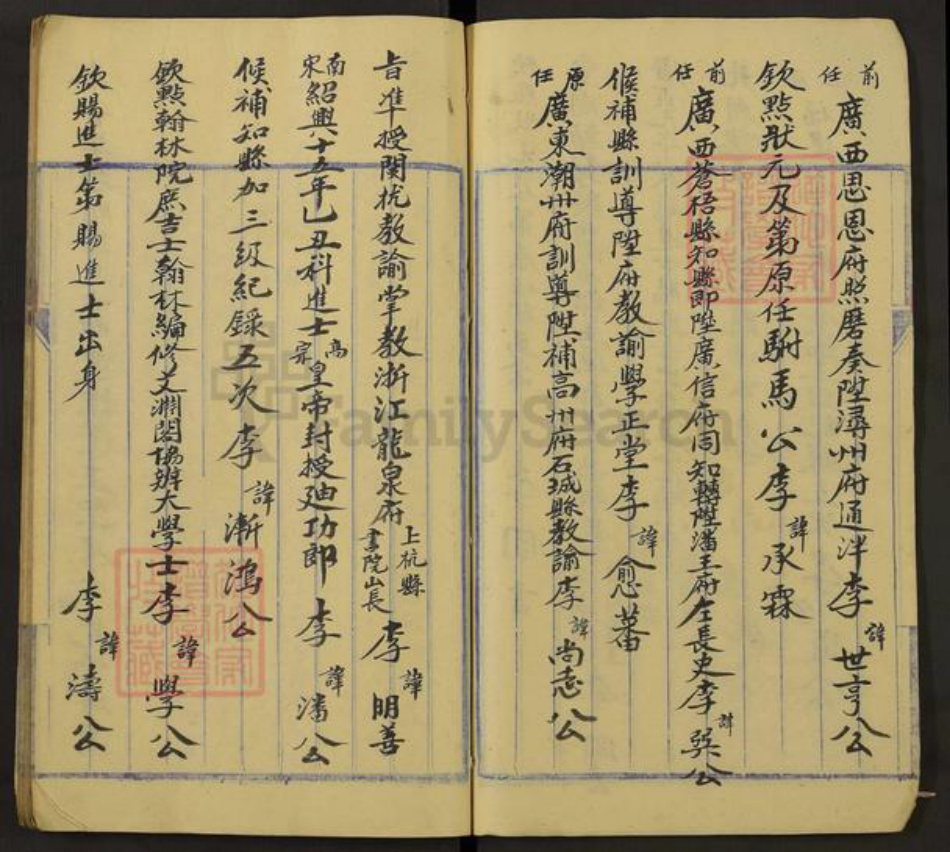 前任廣西思恩府照磨奏陞潯州府通泮李諱世亨公
欽點狀元及第原任駙馬公李諱承霖
前任廣西蒼梧縣知縣即陞廣信府同知轉陞潘王府左長史李諱巽公
候補縣訓導陞府教諭學正堂李諱愈蕃
原任廣東潮州府訓導陞補高州府石城縣教諭李諱尚志公
旨准授閩杭教諭掌教浙江龍泉府上杭縣書院山長李諱明善
南宋紹興十五年乙丑科進士高宗皇帝封授迪功郎李諱潘公
候補知縣加三級紀錄五次李諱漸鴻公
欽點翰林院庶吉士翰林編修文淵閣協辦大學士李諱學公
欽賜進士第賜進士出身李諱濤公
FamilySearch